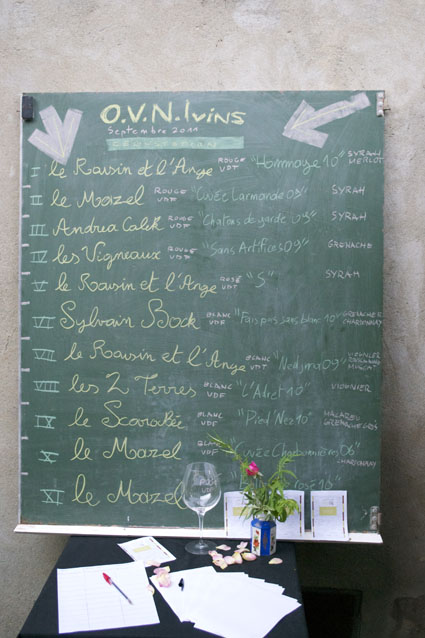 O.V.N.Ivins
Septembre 2011
I le Raisin et l'Ange ROUGE VDT "Hommage 10" SYRAH MERLOT
II le Mazel ROUGE VDT "Cuvée Larmande 09" SYRAH
III Andrea Calek ROUGE VDT "Chatons de garde 09" SYRAH
IV les Vigneaux ROUGE VDT "Sans Artifices 09" GRENACHE
V le Raisin et l'Ange ROSÉ VDT "S" SYRAH
VI Sylvain Bock BLANC VDF "Fais pas sans blanc 10" GRENACHE B CHARDONNAY
VII le Raisin et l'Ange BLANC VDT "Nedjma 09" VIOGNIER MUSCAT
VIII les 2 Terres BLANC VDF "L'Aliet 10" VIOGNIER
IX le Scarabée BLANC VDF "Pied Nez 10" GRENACHE GRIS
X le Mazel BLANC "Cuvée Charbonnières 06" CHARDONNAY
XI le Mazel